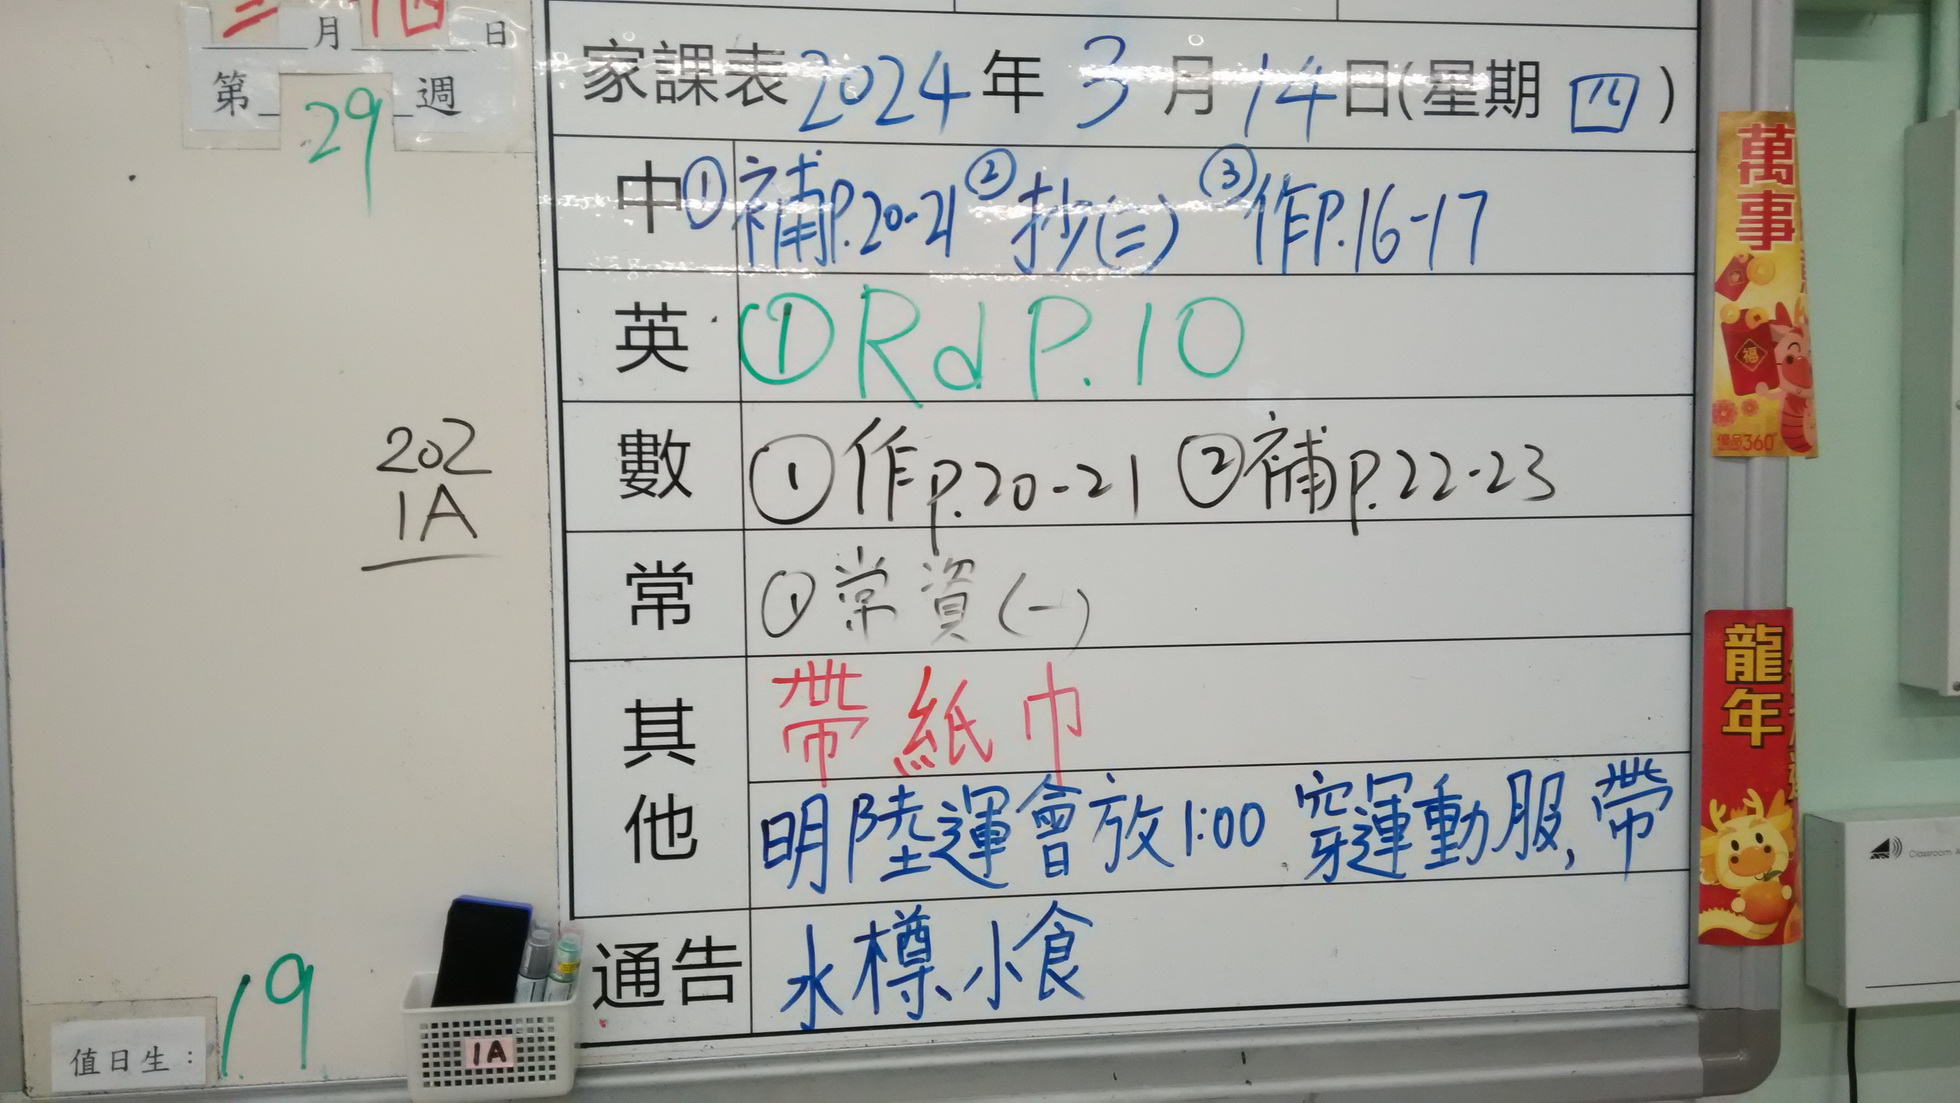 三月十四日
第29週
202
1A
值日生：19
1A
家課表2024年3月14日(星期四)
中①補P.20-21②抄(三)③作P.16-17
英①Rd P.10
數①作P.20-21②補P.22-23
常①常資(一)
其他
帶紙巾
明陸運會放1:00 穿運動服,帶
通告 水樽、小食
萬事
福
優品360
龍年
Classroom